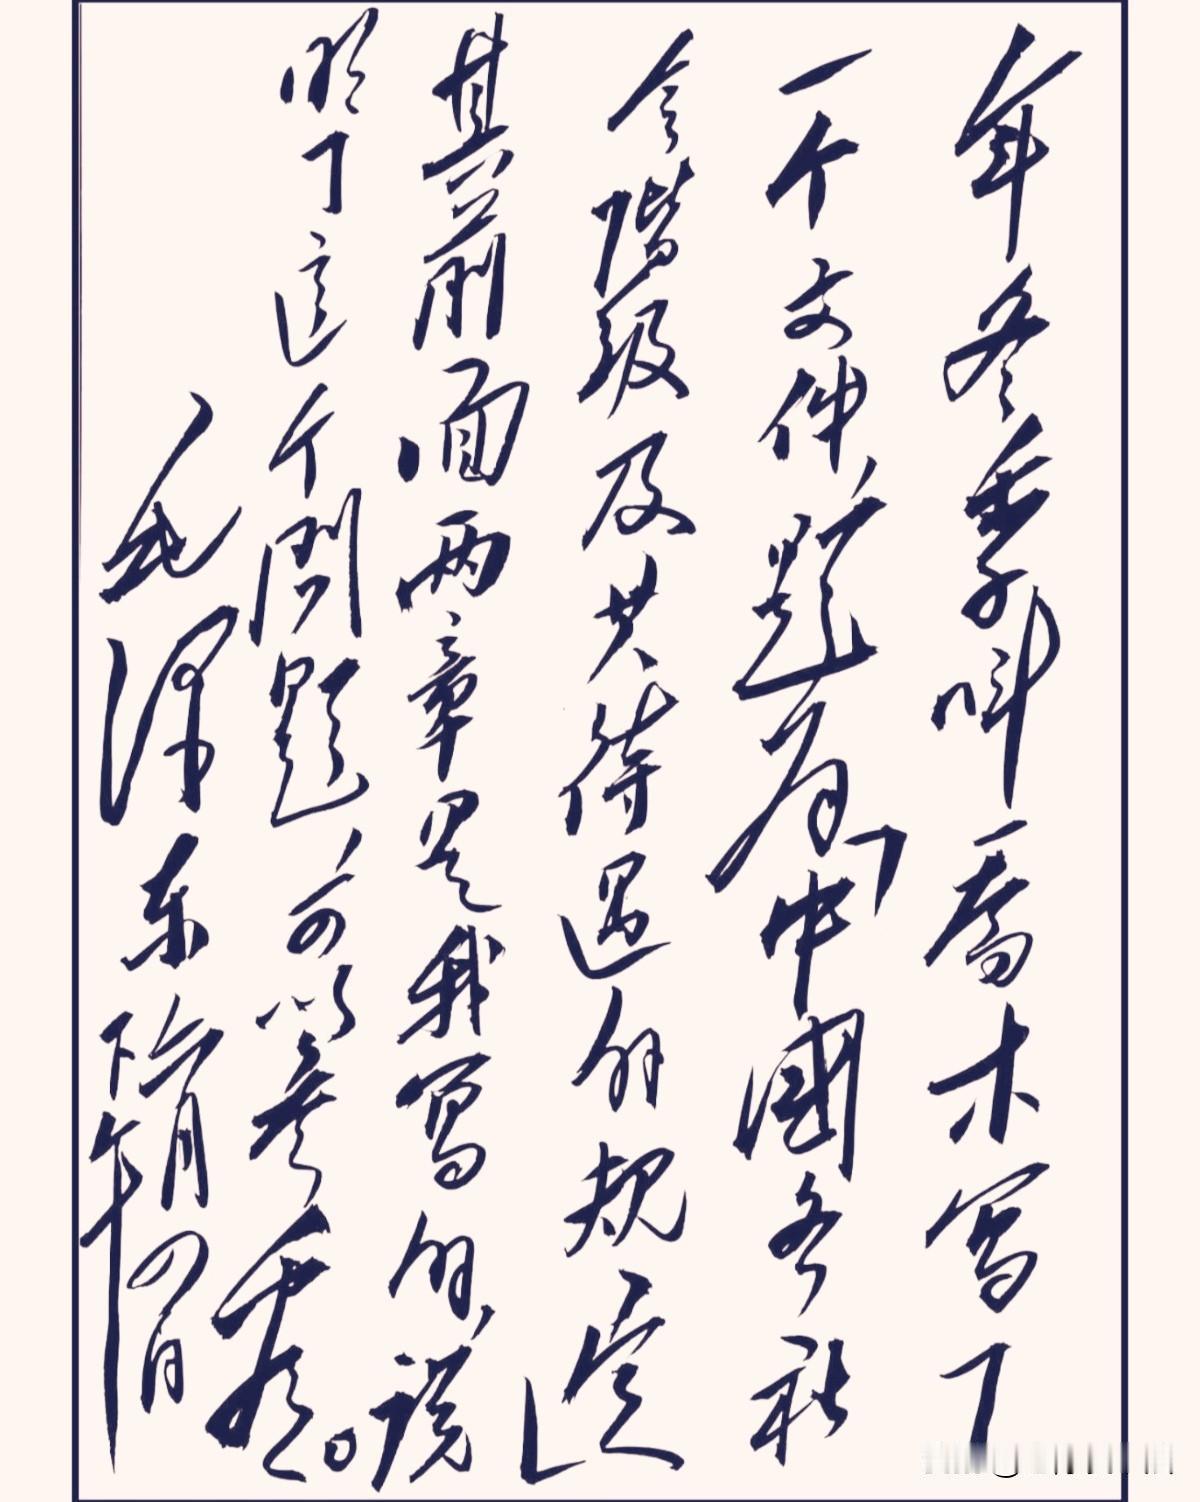 年冬季叫喬木写了
一个文件，題为「中國各社
会階级及其待遇的規定」
其前面两章是我写的，説
明了这个问题，可以参看。
毛泽东
四月 下午